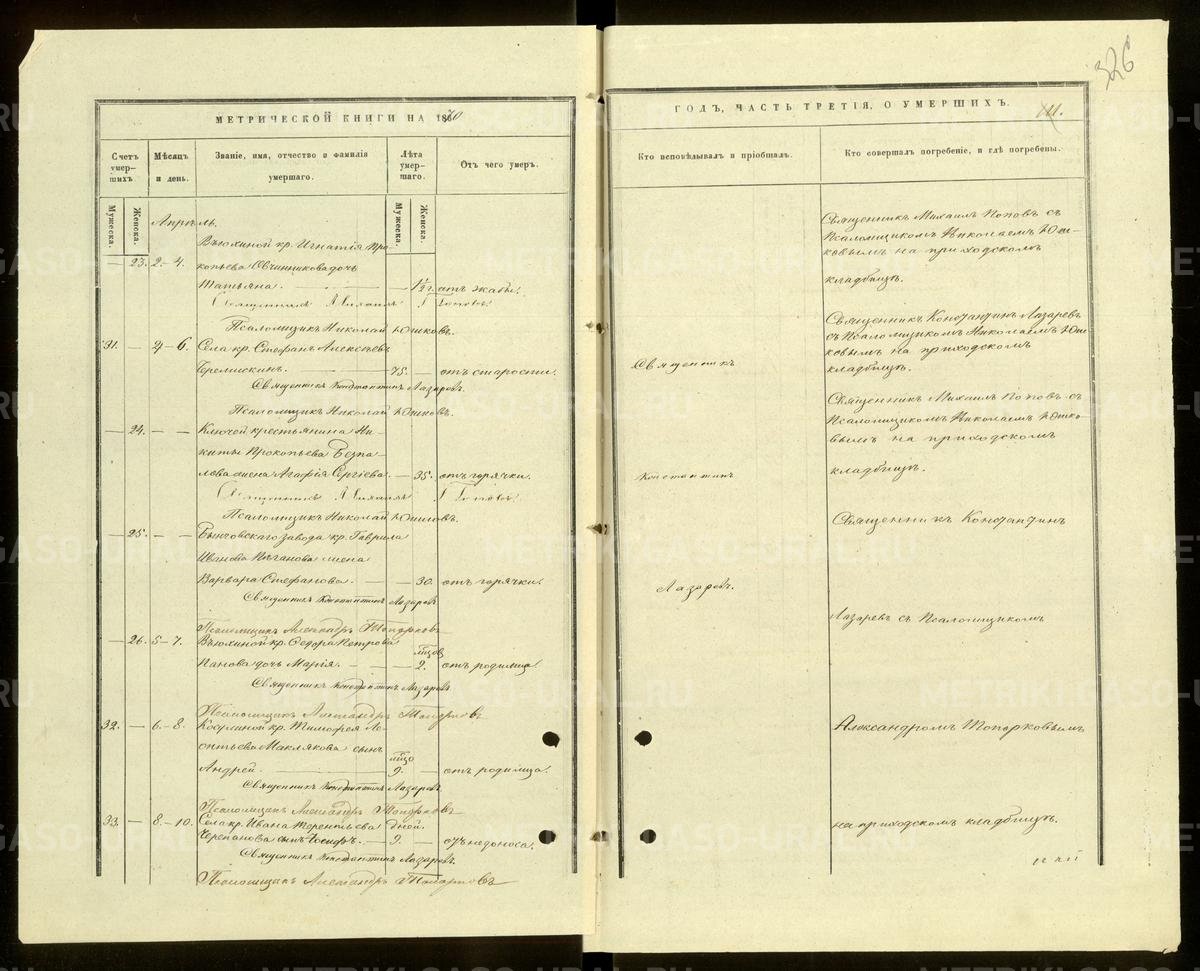 326
МЕТРИЧЕСКОЙ КНИГИ НА 1870
ГОДЪ, ЧАСТЬ ТРЕТІЯ, О УМЕРШИХЪ.
Счетъ умершихъ.
Мѣсяцъ и день.
Званіе, имя, отчество и фамилія умершаго.
Лѣта умершаго.
Отъ чего умеръ.
Кто исповѣдывалъ и пріобщалъ.
Кто совершалъ погребеніе, и гдѣ погребены.
Мужеска.
Женска.
Мужеска.
Женска.
Апрѣль.
Вьюхиной кр. Игнатія Про-
— 23. 2.—4. копьева Овчинникова дочь
Татьяна. — 1½ г. отъ жабы.
Священникъ Михаилъ Поповъ.
Псаломщикъ Николай Юшковъ.
31. — 4—6. Села кр. Стефанъ Алексѣевъ
75. — отъ старости.
Священникъ Константинъ Лазаревъ.
Псаломщикъ Николай Юшковъ.
— 24. — — Ключей крестьянина Ни-
киты Прокопьева
жена Агафія Сергіева. — 35. отъ горячки.
Священникъ Михаилъ Поповъ.
Псаломщикъ Николай Юшковъ.
— 25. — — завода кр. Гаврила
Иванова жена
Варвара Стефанова. — 30. отъ горячки.
Священникъ Константинъ Лазаревъ
Псаломщикъ Александръ Топорковъ
— 26. 5—7. Вьюхиной кр. Ѳедора Петрова
Панова дочь Марія. — 2. отъ родимца.
Священникъ Константинъ Лазаревъ.
Псаломщикъ Александръ Топорковъ
32. — 6—8. кр. Тимофея Ле-
онтьева Маклякова сынъ
Андрей. 9. — отъ родимца.
Священникъ Константинъ Лазаревъ
Псаломщикъ Александръ Топорковъ
33. — 8—10. Села кр. Ивана Терентьева дней.
Черепанова сынъ Іосифъ. — 9. — отъ недоноса.
Священникъ Константинъ Лазаревъ.
Псаломщикъ Александръ Топорковъ
Священникъ
Константинъ
Лазаревъ.
Священникъ Михаилъ Поповъ съ
Псаломщикомъ Николаемъ Юш-
ковымъ на приходскомъ
кладбищѣ.
Священникъ Константинъ Лазаревъ
съ Псаломщикомъ Николаемъ Юш-
ковымъ на приходскомъ
кладбищѣ.
Священникъ Михаилъ Поповъ съ
Псаломщикомъ Николаемъ Юшко-
вымъ на приходскомъ
кладбищѣ.
Священникъ Константинъ
Лазаревъ съ Псаломщикомъ
Александромъ Топорковымъ
на приходскомъ кладбищѣ.
METRIKI.GASO-URAL.RU